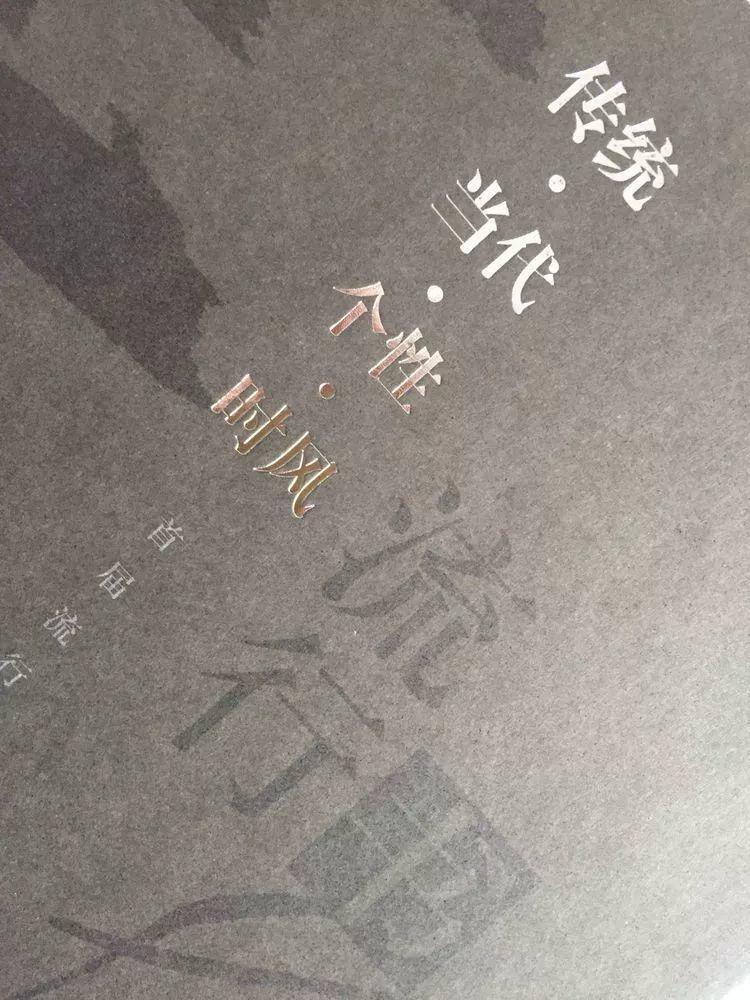 传统·
当代·
个性·
时风
首届流行
流行